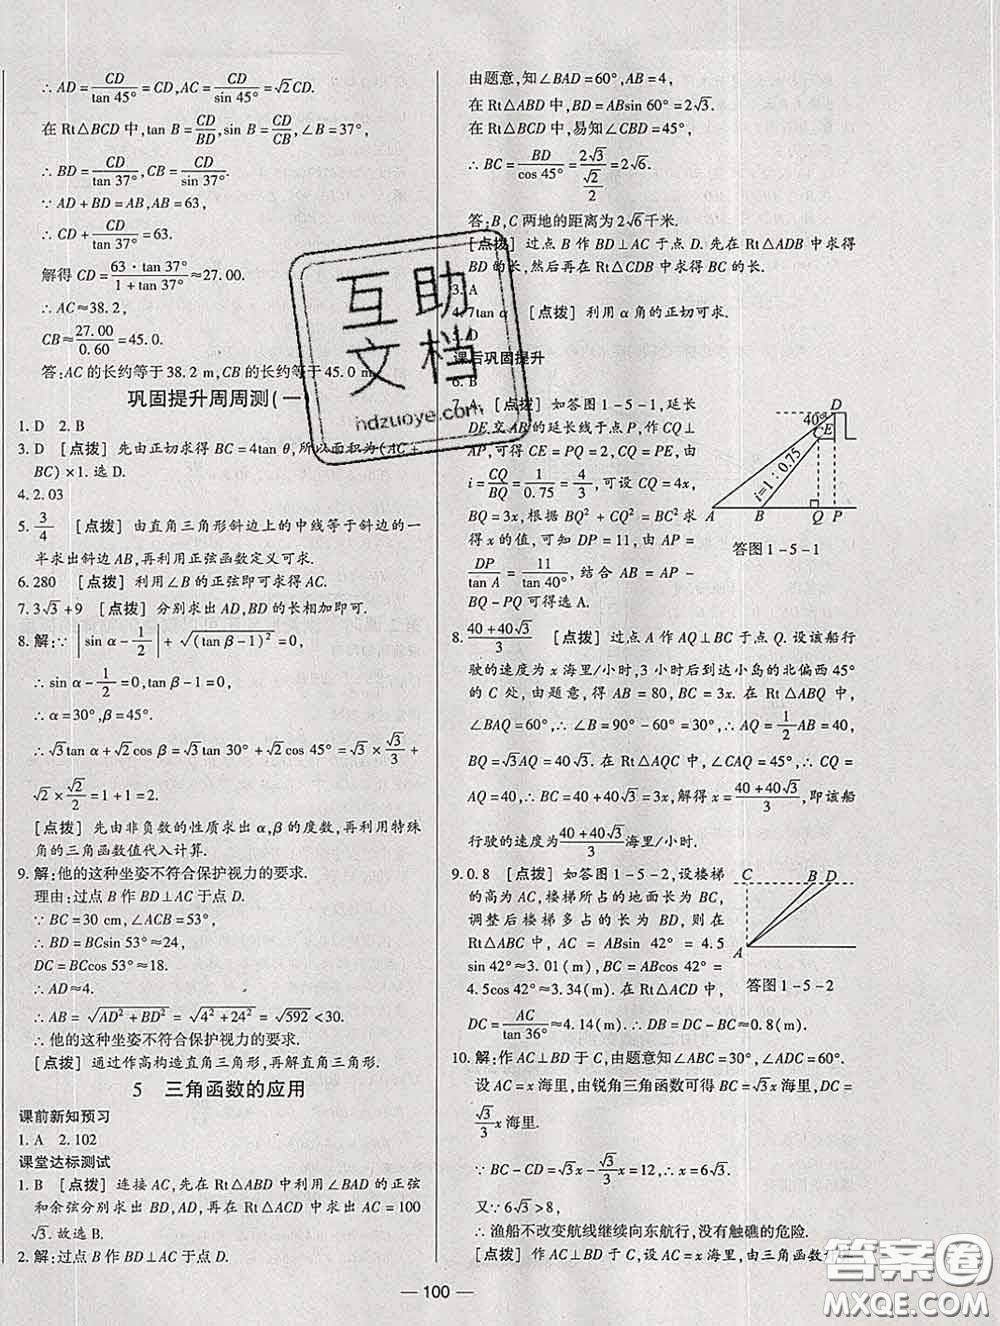 ∴ AD = CD/tan 45° = CD, AC = CD/sin 45° = √2CD.
在 Rt△BCD 中, tan B = CD/BD, sin B = CD/CB, ∠B = 37°,
∴ BD = CD/tan 37°, CB = CD/sin 37°.
∵ AD + BD = AB, AB = 63,
∴ CD + CD/tan 37° = 63.
解得 CD = 63·tan 37°/1 + tan 37° ≈ 27.00.
∴ AC ≈ 38.2,
CB ≈ 27.00/0.60 = 45.0.
答: AC 的长约等于 38.2 m, CB 的长约等于 45.0 m.
巩固提升周周测(一)
1. D 2. B
3. D [点拨] 先由正切求得 BC = 4tan θ, 所以面积为(AC +
BC) × 1. 选 D.
4. 2.03
5. 3/4 [点拨] 由直角三角形斜边上的中线等于斜边的一
半求出斜边 AB, 再利用正弦函数定义可求.
6. 280 [点拨] 利用∠B 的正弦即可求得 AC.
7. 3√3 + 9 [点拨] 分别求出 AD, BD 的长相加即可.
8. 解: ∵ |sin α - 1/2| + √(tan β - 1)² = 0,
∴ sin α - 1/2 = 0, tan β - 1 = 0.
∴ α = 30°, β = 45°.
∴ √3tan α + √2cos β = √3tan 30° + √2cos 45° = √3 × √3/3 +
√2 × √2/2 = 1 + 1 = 2.
[点拨] 先由非负数的性质求出 α, β 的度数, 再利用特殊
角的三角函数值代入计算.
9. 解: 他的这种坐姿不符合保护视力的要求.
理由: 过点 B 作 BD⊥AC 于点 D.
∵ BC = 30 cm, ∠ACB = 53°,
∴ BD = BCsin 53° ≈ 24,
DC = BCcos 53° ≈ 18.
∴ AD ≈ 4.
∴ AB = √AD² + BD² = √4² + 24² = √592 < 30.
∴ 他的这种坐姿不符合保护视力的要求.
[点拨] 通过作高构造直角三角形, 再解直角三角形.
5 三角函数的应用
课前新知预习
1. A 2. 102
课堂达标测试
1. B [点拨] 连接 AC, 先在 Rt△ABD 中利用∠BAD 的正弦
和余弦分别求出 BD, AD, 再在 Rt△ACD 中求出 AC = 100
√3. 故选 B.
2. 解: 过点 B 作 BD⊥AC 于点 D.
由题意, 知∠BAD = 60°, AB = 4,
在 Rt△ABD 中, BD = ABsin 60° = 2√3.
在 Rt△CBD 中, 易知∠CBD = 45°,
∴ BC = BD/cos 45° = 2√3/(√2/2) = 2√6.
答: B, C 两地的距离为 2√6千米.
[点拨] 过点 B 作 BD⊥AC 于点 D. 先在 Rt△ADB 中求得
BD 的长, 然后再在 Rt△CDB 中求得 BC 的长.
3. A
4. 7tan α [点拨] 利用 α 角的正切可求.
5. D
课后巩固提升
6. B
7. A [点拨] 如答图 1-5-1, 延长
DE 交 AB 的延长线于点 P, 作 CQ⊥
AP, 可得 CE = PQ = 2, CQ = PE, 由
i = CQ/BQ = 1/0.75 = 4/3, 可设 CQ = 4x,
BQ = 3x, 根据 BQ² + CQ² = BC² 求得
x 的值, 可知 DP = 11, 由 AP =
DP/tan A = 11/tan 40°, 结合 AB = AP -
BQ - PQ 可得选 A.
40° D
C E
i=1:0.75
A B Q P
答图 1-5-1
8. 40 + 40√3/3 [点拨] 过点 A 作 AQ⊥BC 于点 Q. 设该船行
驶的速度为 x 海里/小时, 3 小时后到达小岛的北偏西 45°
的 C 处, 由题意, 得 AB = 80, BC = 3x. 在 Rt△ABQ 中,
∠BAQ = 60°, ∴ ∠B = 90° - 60° = 30°, ∴ AQ = 1/2AB = 40,
BQ = √3AQ = 40√3. 在 Rt△AQC 中, ∠CAQ = 45°, ∴ CQ =
AQ = 40, ∴ BC = 40 + 40√3 = 3x, 解得 x = 40 + 40√3/3, 即该船
行驶的速度为 40 + 40√3/3 海里/小时.
9. 0.8 [点拨] 如答图 1-5-2, 设楼梯
的高为 AC, 楼梯所占的地面长为 BC,
调整后楼梯多占的长为 BD, 则在
Rt△ABC 中, AC = ABsin 42° = 4.5
sin 42° ≈ 3.01(m), BC = ABcos 42° =
4.5cos 42° ≈ 3.34(m). 在 Rt△ACD 中,
DC = AC/tan 36° ≈ 4.14(m). ∴ DB = DC - BC ≈ 0.8(m).
C B D
A
答图 1-5-2
10. 解: 作 AC⊥BD 于 C, 由题意知∠ABC = 30°, ∠ADC = 60°.
设 AC = x 海里, 由锐角三角函数可得 BC = √3x 海里, CD =
√3/3 x 海里.
∵ BC - CD = √3x - √3/3 x = 12, ∴ x = 6√3.
又∵ 6√3 > 8,
∴ 渔船不改变航线继续向东航行, 没有触礁的危险.
[点拨] 作 AC⊥BD 于 C, 设 AC = x 海里, 由三角函数
— 100 —
互助
文档
hdzuoye.com
答案圈
MXQE.COM